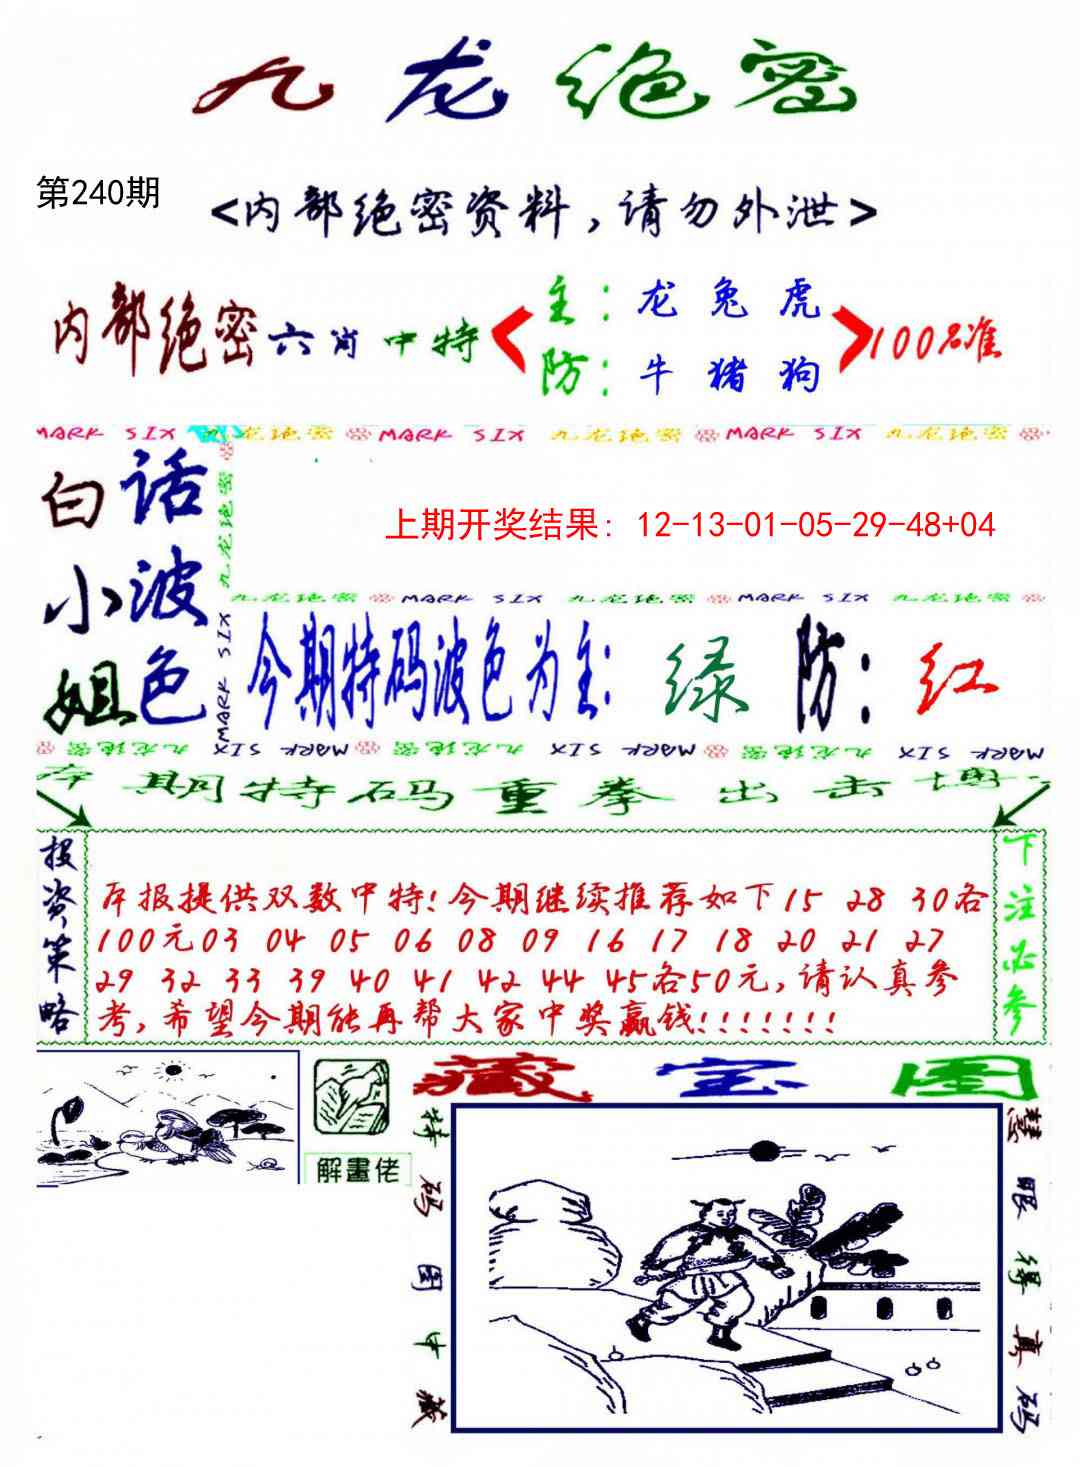 九龙绝密
第240期
<内部绝密资料,请勿外泄>
内部绝密六肖中特
主:龙 兔 虎
防:牛 猪 狗
100%准
MARK SIX 九龙绝密 MARK SIX 九龙绝密 MARK SIX 九龙绝密
白小姐
话波色
九龙绝密
MARK SIX
上期开奖结果: 12-13-01-05-29-48+04
九龙绝密 MARK SIX 九龙绝密 MARK SIX 九龙绝密
今期特码波色为主:绿 防:红
九龙绝密 MARK SIX 九龙绝密 MARK SIX 九龙绝密 MARK SIX
本期特码重拳出击博
投资策略
本报提供双数中特!今期继续推荐如下15 28 30各
100元03 04 05 06 08 09 16 17 18 20 21 27
29 32 33 39 40 41 42 44 45各50元,请认真参
考,希望今期能再帮大家中奖赢钱!!!!!!!
下注必参
解畫佬
藏宝图
特码图中藏
慧眼得真码